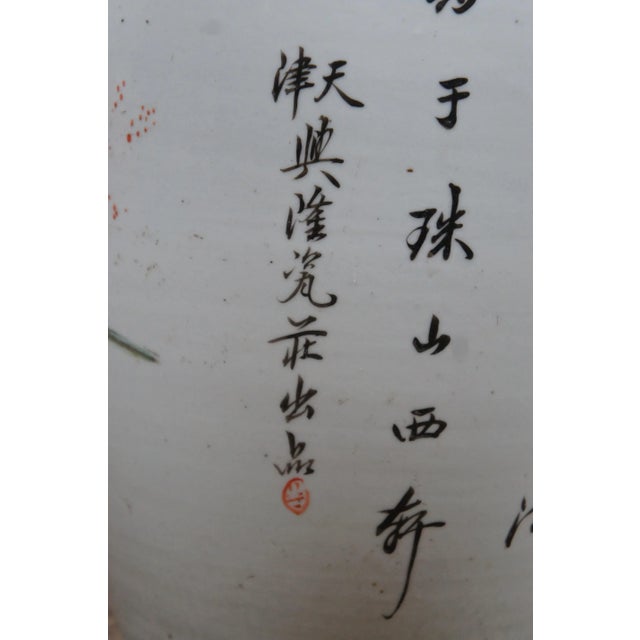 于珠山西軒
天津興隆瓷莊出品